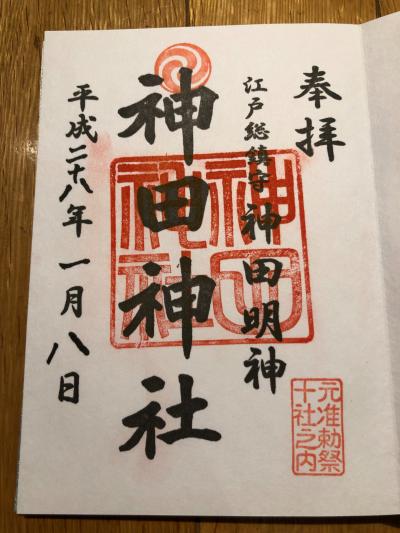 奉拝
江戸総鎮守 神田明神
神田神社
平成二十八年一月八日
神田神社
元准勅祭
十社之内